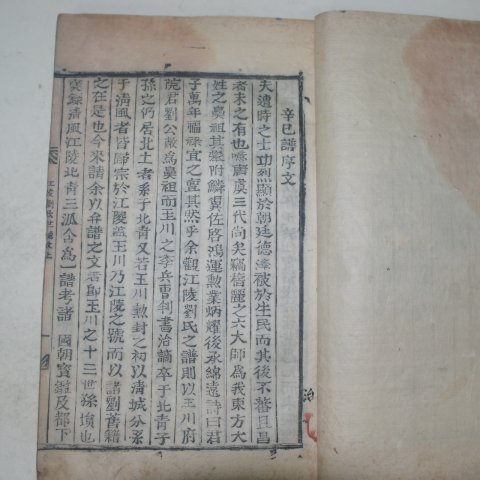 辛巳譜序文
夫遭時之士功烈顯於朝廷德澤被於生民而其後不蕃且昌
者未之有也噫唐虞三代尚矣竊稽麗之六大師爲我東方大
姓之鼻祖而攀鱗翼佐啓鴻運勳業炳耀後承綿遠詩曰君
子萬年福祿宜之豈其然乎余觀江陵劉氏之譜則以玉川府
院君劉公敞爲鼻祖而玉川之李兵曹判書洽謫卒于北靑子
孫之仍居北土者系于北靑又若玉川勲封之初以淸城分系
于淸風者皆歸宗於江陵蓋玉川乃江陵之號而以諸劉舊籍
之在是也今來請余以弁譜之文者卽玉川之十三世孫塤也
實錄淸風江陵北靑三派合爲一譜考諸 國朝寶鑑及都下